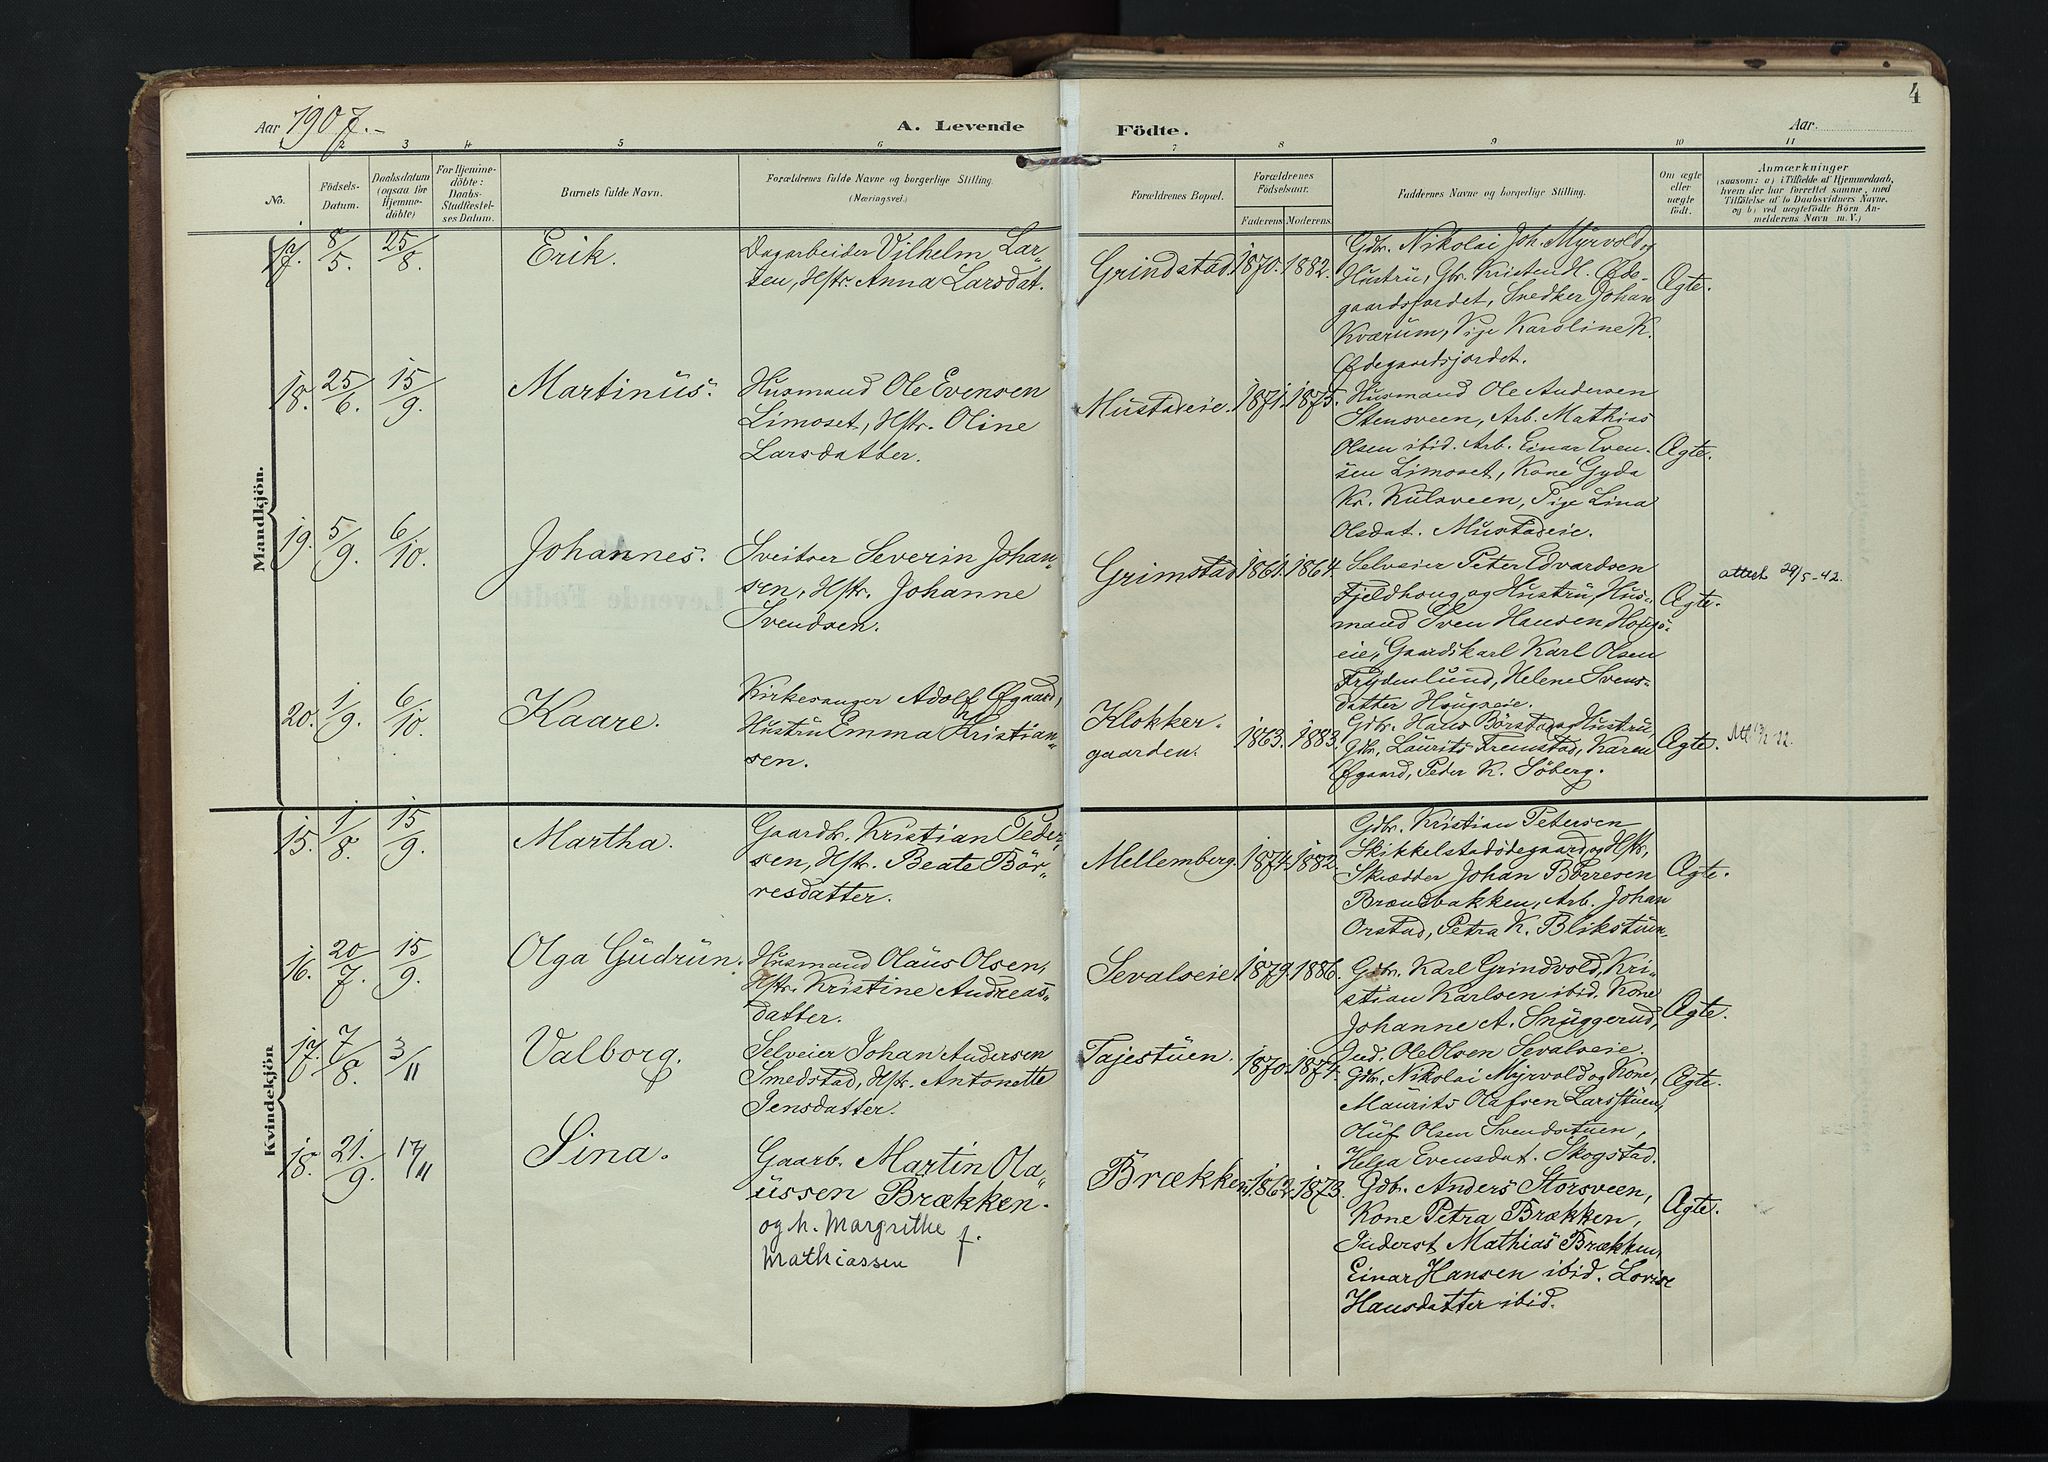 Aar 1907.-
A. Levende
Födte.
Aar
4
1 2 3 4 5 6 7 8 9 10 11
No.
Födsels-
Datum.
Daabsdatum
(ogsaa for
Hjemme-
döbte)
For Hjemme-
döbte:
Daabs-
Stadfæstel-
ses Datum.
Barnets fulde Navn.
Forældrenes fulde Navne og borgerlige Stilling.
(Næringsvei.)
Forældrenes Bopæl.
Forældrenes
Födselsaar.
Faderens. Moderens.
Faddernes Navne og borgerlige Stilling.
Om ægte
eller
uægte
födt.
Anmærkninger
(saasom: a) i Tilfælde af Hjemmedaab,
hvem der har forrettet samme, med
Tilföielse af to Daabsvidners Navne,
og b) ved uægtefödte Börn An-
melderens Navn m. V.)
Mandkjön.
17. 8/5. 25/8. Erik.
Dagarbeider Vilhelm Lar-
sen, Hstr. Anna Larsdat.
Grindstad. 1870. 1882.
Gdbr. Nikolai Joh. Myrvold og
Hustru, Gbr. Kristen H. Øde-
gaardsjordet, Snedker Johan
Kværum, Pige Karoline K.
Ødegaardsjordet.
Ægte.
18. 25/6. 15/9. Martinus.
Husmand Ole Evensen
Limoset, Hstr. Oline
Larsdatter.
Mustadeie. 1871. 1875.
Husmand Ole Andersen
Stensveen, Arb. Mathias
Olsen ibid. Arb. Einar Even-
sen Limoset, Kone Gyda
Kr. Kulsveen, Pige Lina
Olsdat. Mustadeie.
Ægte.
19. 5/9. 6/10. Johannes.
Sveitser Severin Johan-
sen, Hstr. Johanne
Svendsen.
Grimstad 1861. 1864.
Selveier Peter Edvardsen
Fjeldhoug og Hustru, Hus-
mand Sven Hansen Hougs-
eie, Gaardskarl Karl Olsen
Frydenlund, Helene Svens-
datter Hougseie.
Ægte.
attest 29/5-42.
20. 1/9. 6/10. Kaare.
Kirkesanger Adolf Øfgaard,
Hustru Emma Kristian-
sen.
Klokker-
gaarden. 1863. 1883.
Gdbr. Hans Börstad og Hustru,
Gdbr. Laurits Fremstad, Karen
Øfgaard, Peder K. Söberg.
Ægte.
Kvindekjön
15. 1/8. 15/9. Martha.
Gaardbr. Kristian Peder-
sen, Hstr. Beate Bör-
resdatter.
Mellemberg. 1874. 1882.
Gdbr. Kristian Petersen
Skikkelstadödegaard og Hstr,
Skrædder Johan Börresen
Brændbakken, Arb. Johan
Orstad, Petra K. Blikstuen.
Ægte.
16. 20/7. 15/9. Olga Gudrun.
Husmand Olaus Olsen,
Hstr. Kristine Andreas-
datter.
Sevalseie 1879. 1886.
Gdbr. Karl Grindvold, Kri-
stian Karlsen ibid. Kone
Johanne A. Snuggerud,
Ind. Ole Olsen Sevalseie.
Ægte.
17. 7/8. 3/11 Valborg.
Selveier Johan Andersen
Smedstad, Hstr. Antonette
Jensdatter.
Tajestuen. 1870. 1874.
Gdbr. Nikolai Myrvold og Kone,
Maurits Olafsen Larsstuen,
Oluf Olsen Svendstuen,
Helga Evensdat. Skogstad.
Ægte.
18. 21./9. 17/11 Sina.
Gaarb. Martin Ola-
ussen Brækken.
og h. Margrithe f.
Mathiassen
Brækken. 1862. 1873.
Gdbr. Anders Storsveen,
Kone Petra Brækken,
Inderst Mathias Brækken,
Einar Hansen ibid. Lovise
Hansdatter ibid.
Ægte.